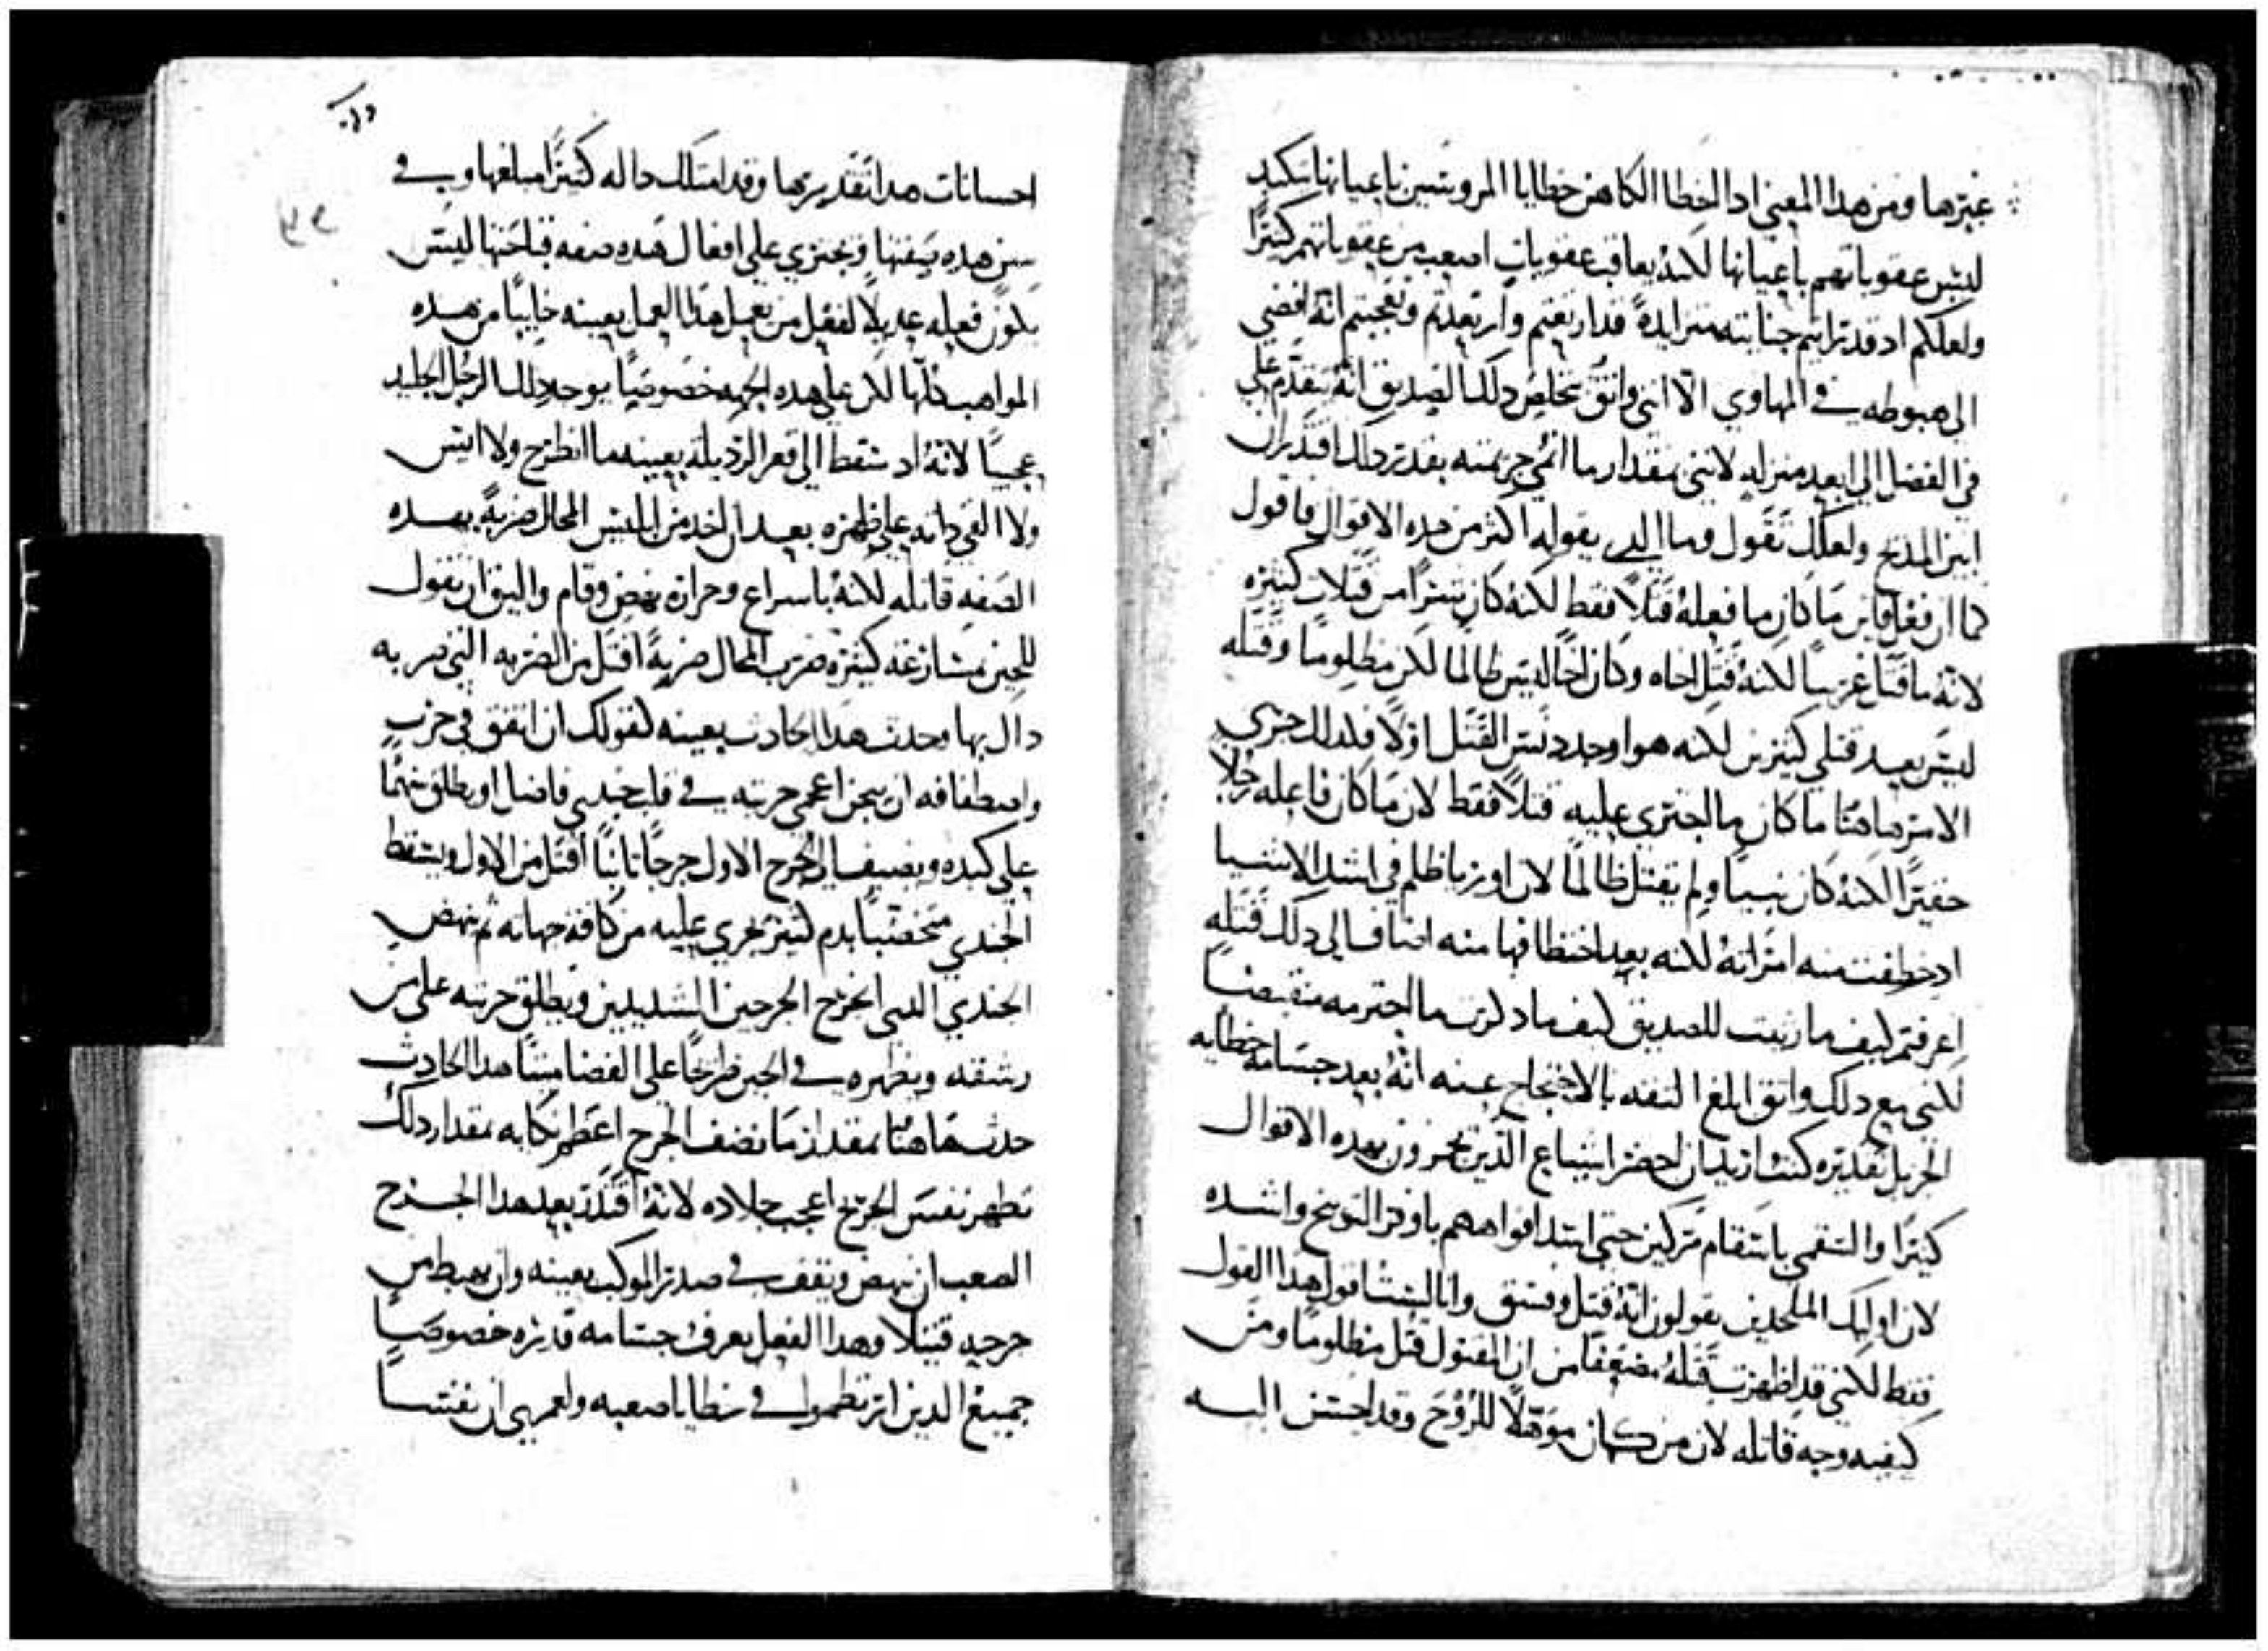 غيرها ومن هذا المعنى اد الخطا الكاهن خطايا المروسين باعيانها تكبد
ليس عقوباتهم باعيانها لكنه يعاقب عقوبات اصعب من عقوباتهم كثيرًا
ولعلكم اد قد ترايتم جنايته متزايدة قد ارتعتم وارتعدتم وتعجبتم انه افضى
الى هبوطه في المهاوي الا انني واثق بتخليص دلك الصديق انه يتقدم على
في الفضل الى ابعد منزله لانني بمقدار ما انمي جريمته بقدر دلك اقتدر ان
ابين المديح ولعلك تقول وما الدي يقوله اكثر من هده الاقوال فاقول
كما ان فعل قاين ما كان ما فعله قتلاً فقط لكنه كان شرًا من قتلات كثيره
لانه ما قتل غريبًا لكنه قتل اخاه وكان اخًا ليس ظالمًا لكن مظلومًا وقتله
ليس بعد قتلي كثيرين لكنه هو اوجد دنس القتل اولاً فلدلك جري
الامر هاهنا ما كان ما اجتري عليه قتلاً فقط لان ما كان فاعله رجلاً
حقيرًا لكنه كان نبيًا ولم يقتل ظالمًا لان اوريا ظلم في اشد الاشيا
اد خطفت منه امراته لانه بعد اختطافها منه اضاف الى دلك قتله
اعرفتم كيف ما رتيت للصديق كيف ما دكرت ما اجترمه منقبضًا
لكني مع دلك واثق ابلغ الثقه بالاحتجاج عنه انه بعد جسامة خطايه
الجزيل تقديره كنت اريد ان احضر اشياع الدين يجرون بهده الاقوال
كثيرًا والسقمى بانتقام مركين حتى اسد افواههم باوفر التوبيخ واشده
لان اوليك الملحدين يقولون انه قتل وفسق وانا لست اقول هدا القول
فقط لكني قد اظهرت قتله مضعفًا من ان المقتول قتل مظلومًا ومن
كيفيه وجه قاتله لان من كان موهلاً للروح وقد احسن اليه
احسانات هدا تقديرها وقد امتلك داله كثيرًا مبلغها وفي
سن هده سنها ويجتري على افعال هده صفه قباحتها ليس
يكون فعله عديلاً لفعل من يعمل هدا العمل بعينه خاليًا من هده
المواهب كلها لكن على هده الجهه خصوصًا يوجد دلك الرجل الجليد
عجيبًا لانه اد سقط الى قعر الرديله بعينه ما انطرح ولا ايس
ولا القى داته على ظهره بعد ان اخد من ابليس المحال ضربةً بهده
الصفه قاتله لكنه باسراع وحراره نهض وقام واليق ان يقول
للحين مسارعه كثيره ضرب المحال ضربةً اقتل من الضربه التي ضربه
داك بها وحدث هدا الحادث بعينه كقولك ان اتفق في حرب
واصطفافه ان يركز اعجمي حربته في قلب جندي فاضل او يطلق سهمًا
على كبده ويضيف الى الجرح الاول جرحًا تانيًا اقتل من الاول ويسقط
الجندي متخضبًا بدم كثير يجري عليه من كافة جهاته ثم ينهض
الجندي الدي انجرح الجرحين الشديدين ويطلق حربته على من
رشقه ويظهره في الحين طريحًا على الفضا ميتًا هدا الحادث
حدث هاهنا بمقدار ما نصف الجرح اعظم نكايه بمقدار دلك
تظهر نفس الجريح اعجب جلاده لانه اقتدر بعد هدا الجرح
الصعب ان ينهض ويقف في صدر الموكب بعينه وان يهبط من
جرحه قتيلاً وهدا الفعل يعرف جسامة قدره خصوصًا
جميع الدين ارتطموا في خطايا صعبه ولعمري ان نفسًا